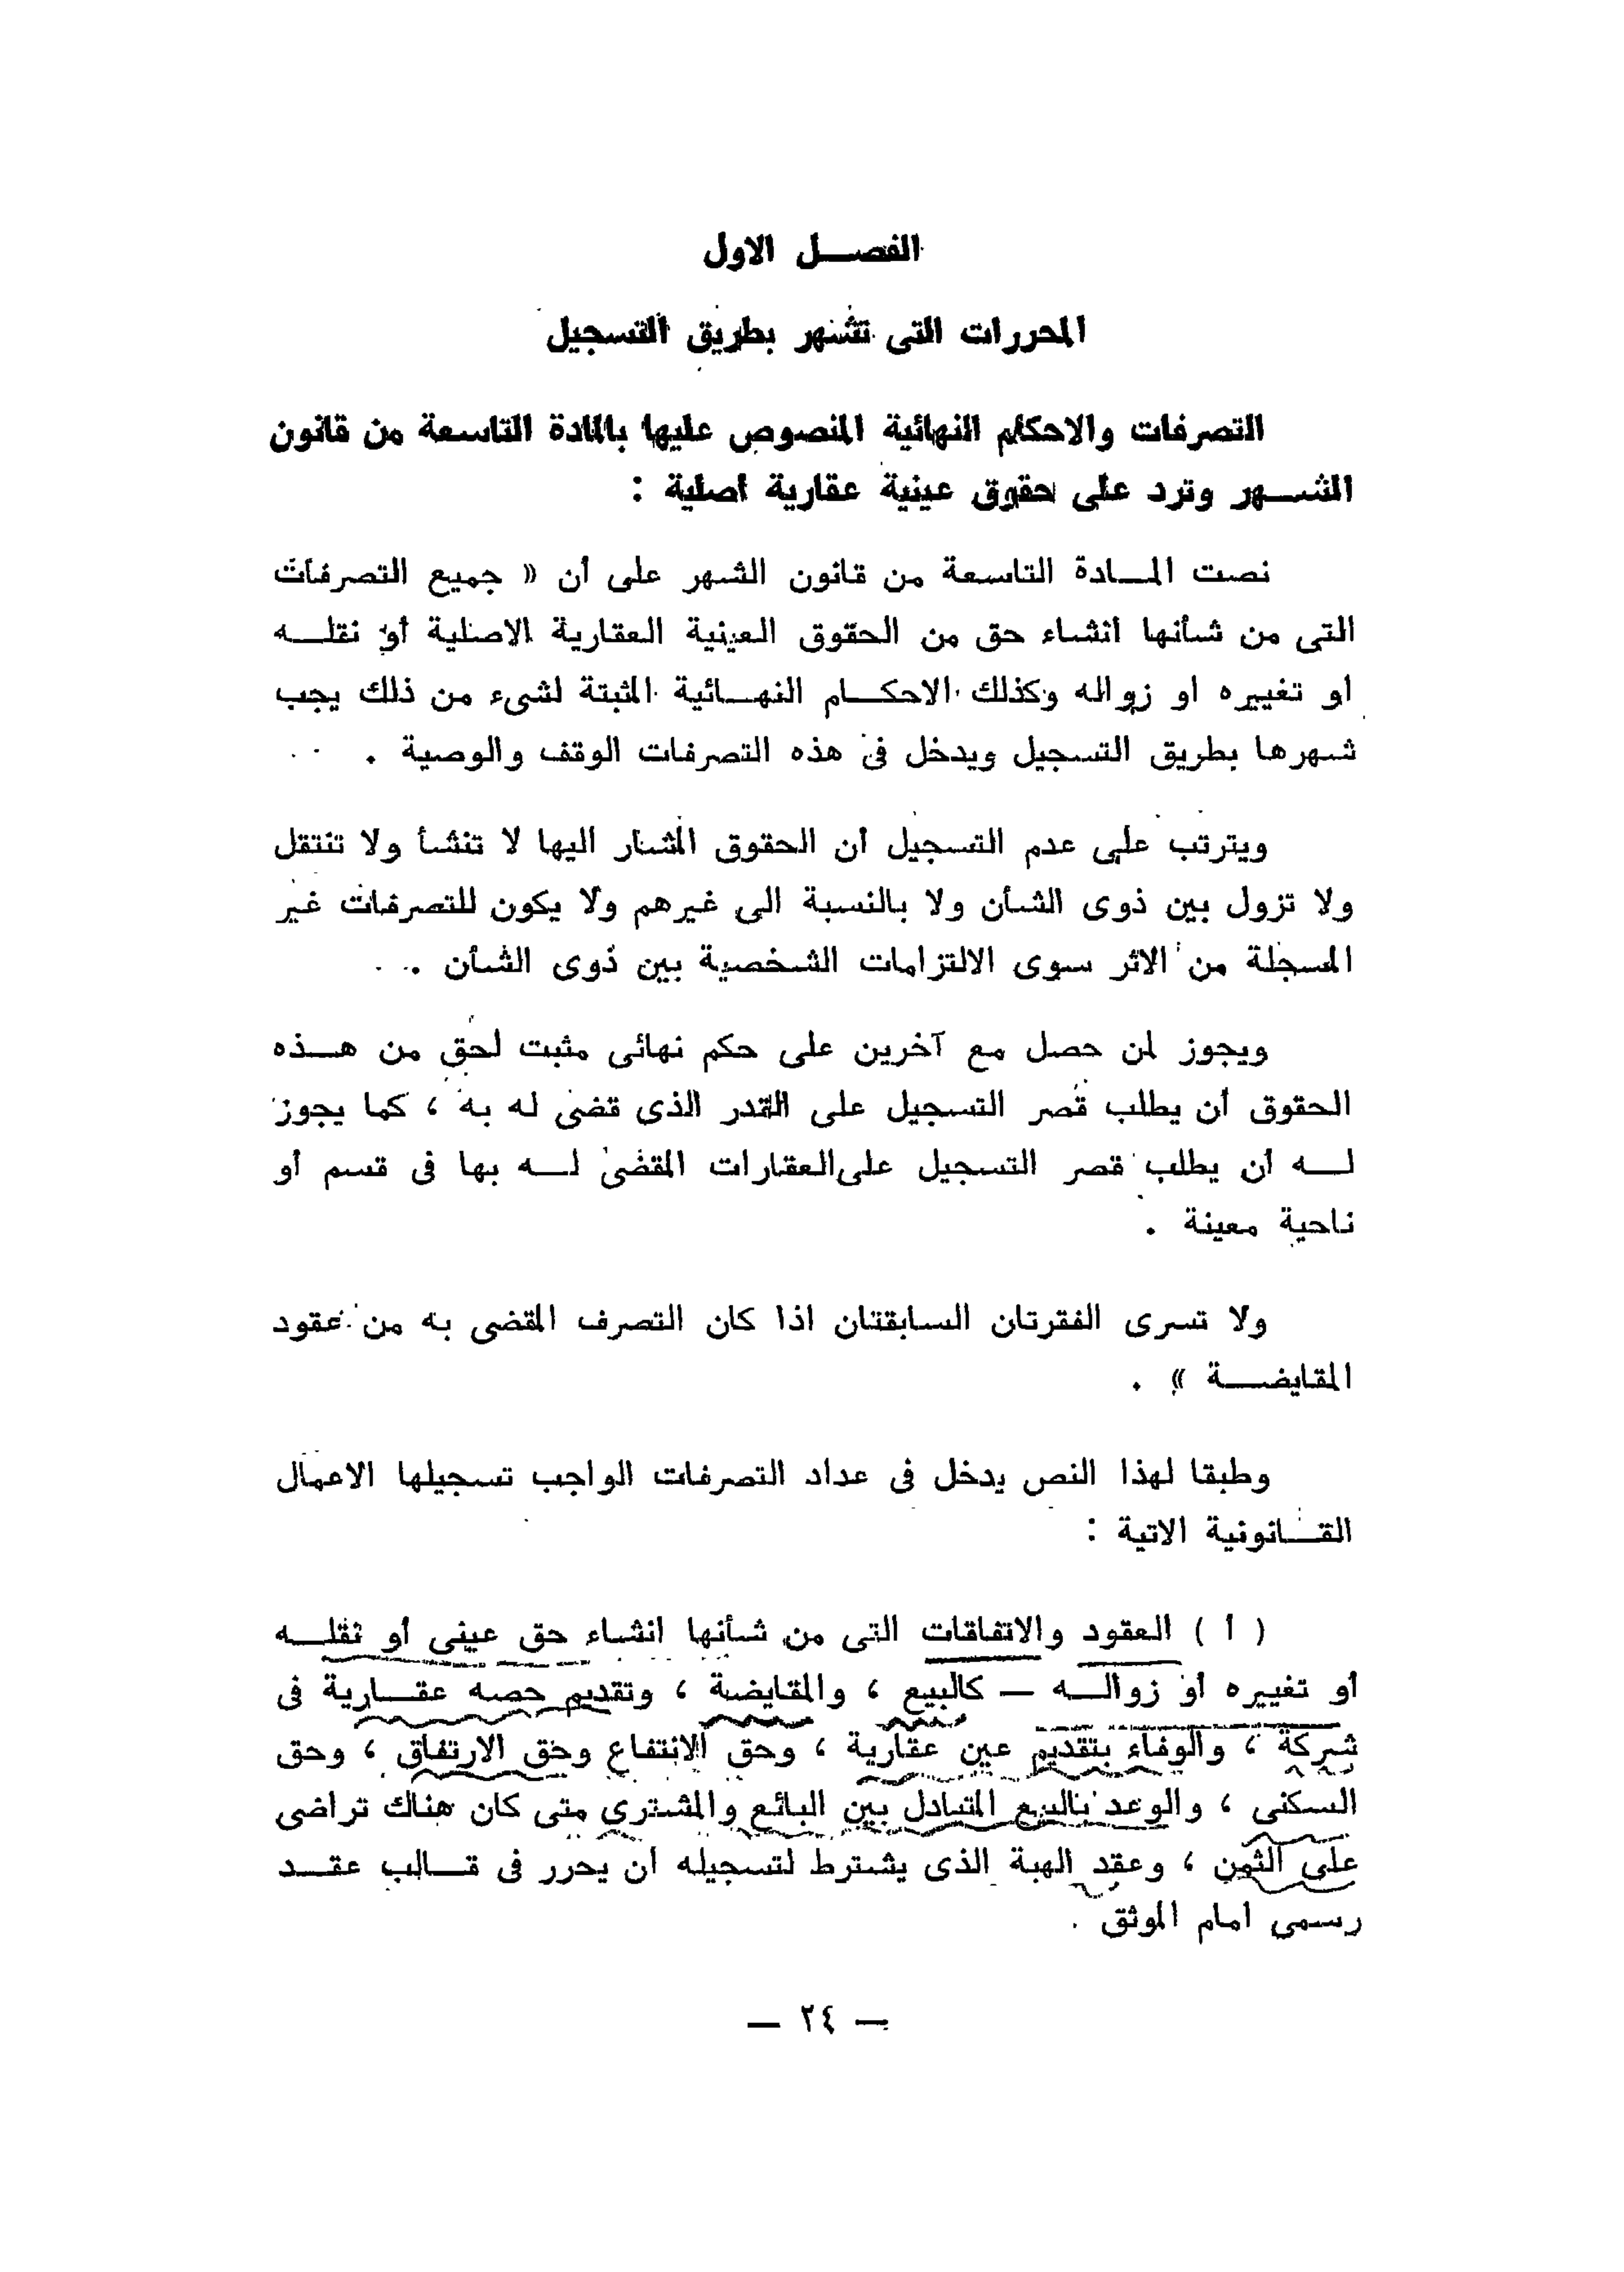 الفصل الاول
المحررات التى تشهر بطريق التسجيل
التصرفات والاحكام النهائية المنصوص عليها بالمادة التاسعة من قانون
الشهر وترد على حقوق عينية عقارية أصلية :
نصت المادة التاسعة من قانون الشهر على أن « جميع التصرفات
التى من شأنها انشاء حق من الحقوق العينية العقارية الاصلية أو نقله
أو تغييره او زواله وكذلك الاحكام النهائية المثبتة لشىء من ذلك يجب
شهرها بطريق التسجيل ويدخل فى هذه التصرفات الوقف والوصية .
ويترتب على عدم التسجيل أن الحقوق المشار اليها لا تنشأ ولا تنتقل
ولا تزول بين ذوى الشأن ولا بالنسبة الى غيرهم ولا يكون للتصرفات غير
المسجلة من الاثر سوى الالتزامات الشخصية بين ذوى الشأن .
ويجوز لمن حصل مع آخرين على حكم نهائى مثبت لحق من هذه
الحقوق أن يطلب قصر التسجيل على القدر الذى قضى له به ، كما يجوز
له أن يطلب قصر التسجيل على العقارات المقضى له بها فى قسم أو
ناحية معينة .
ولا تسرى الفقرتان السابقتان اذا كان التصرف المقضى به من عقود
المقايضة » .
وطبقا لهذا النص يدخل فى عداد التصرفات الواجب تسجيلها الاعمال
القانونية الاتية :
( أ ) العقود والاتفاقات التى من شأنها انشاء حق عينى أو نقله
أو تغييره أو زواله — كالبيع ، والمقايضة ، وتقديم حصه عقارية فى
شركة ، والوفاء بتقديم عين عقارية ، وحق الانتفاع وحق الارتفاق ، وحق
السكنى ، والوعد بالبيع المتبادل بين البائع والمشترى متى كان هناك تراضى
على الثمن ، وعقد الهبة الذى يشترط لتسجيله أن يحرر فى قالب عقد
رسمى امام الموثق .
— ٢٤ —